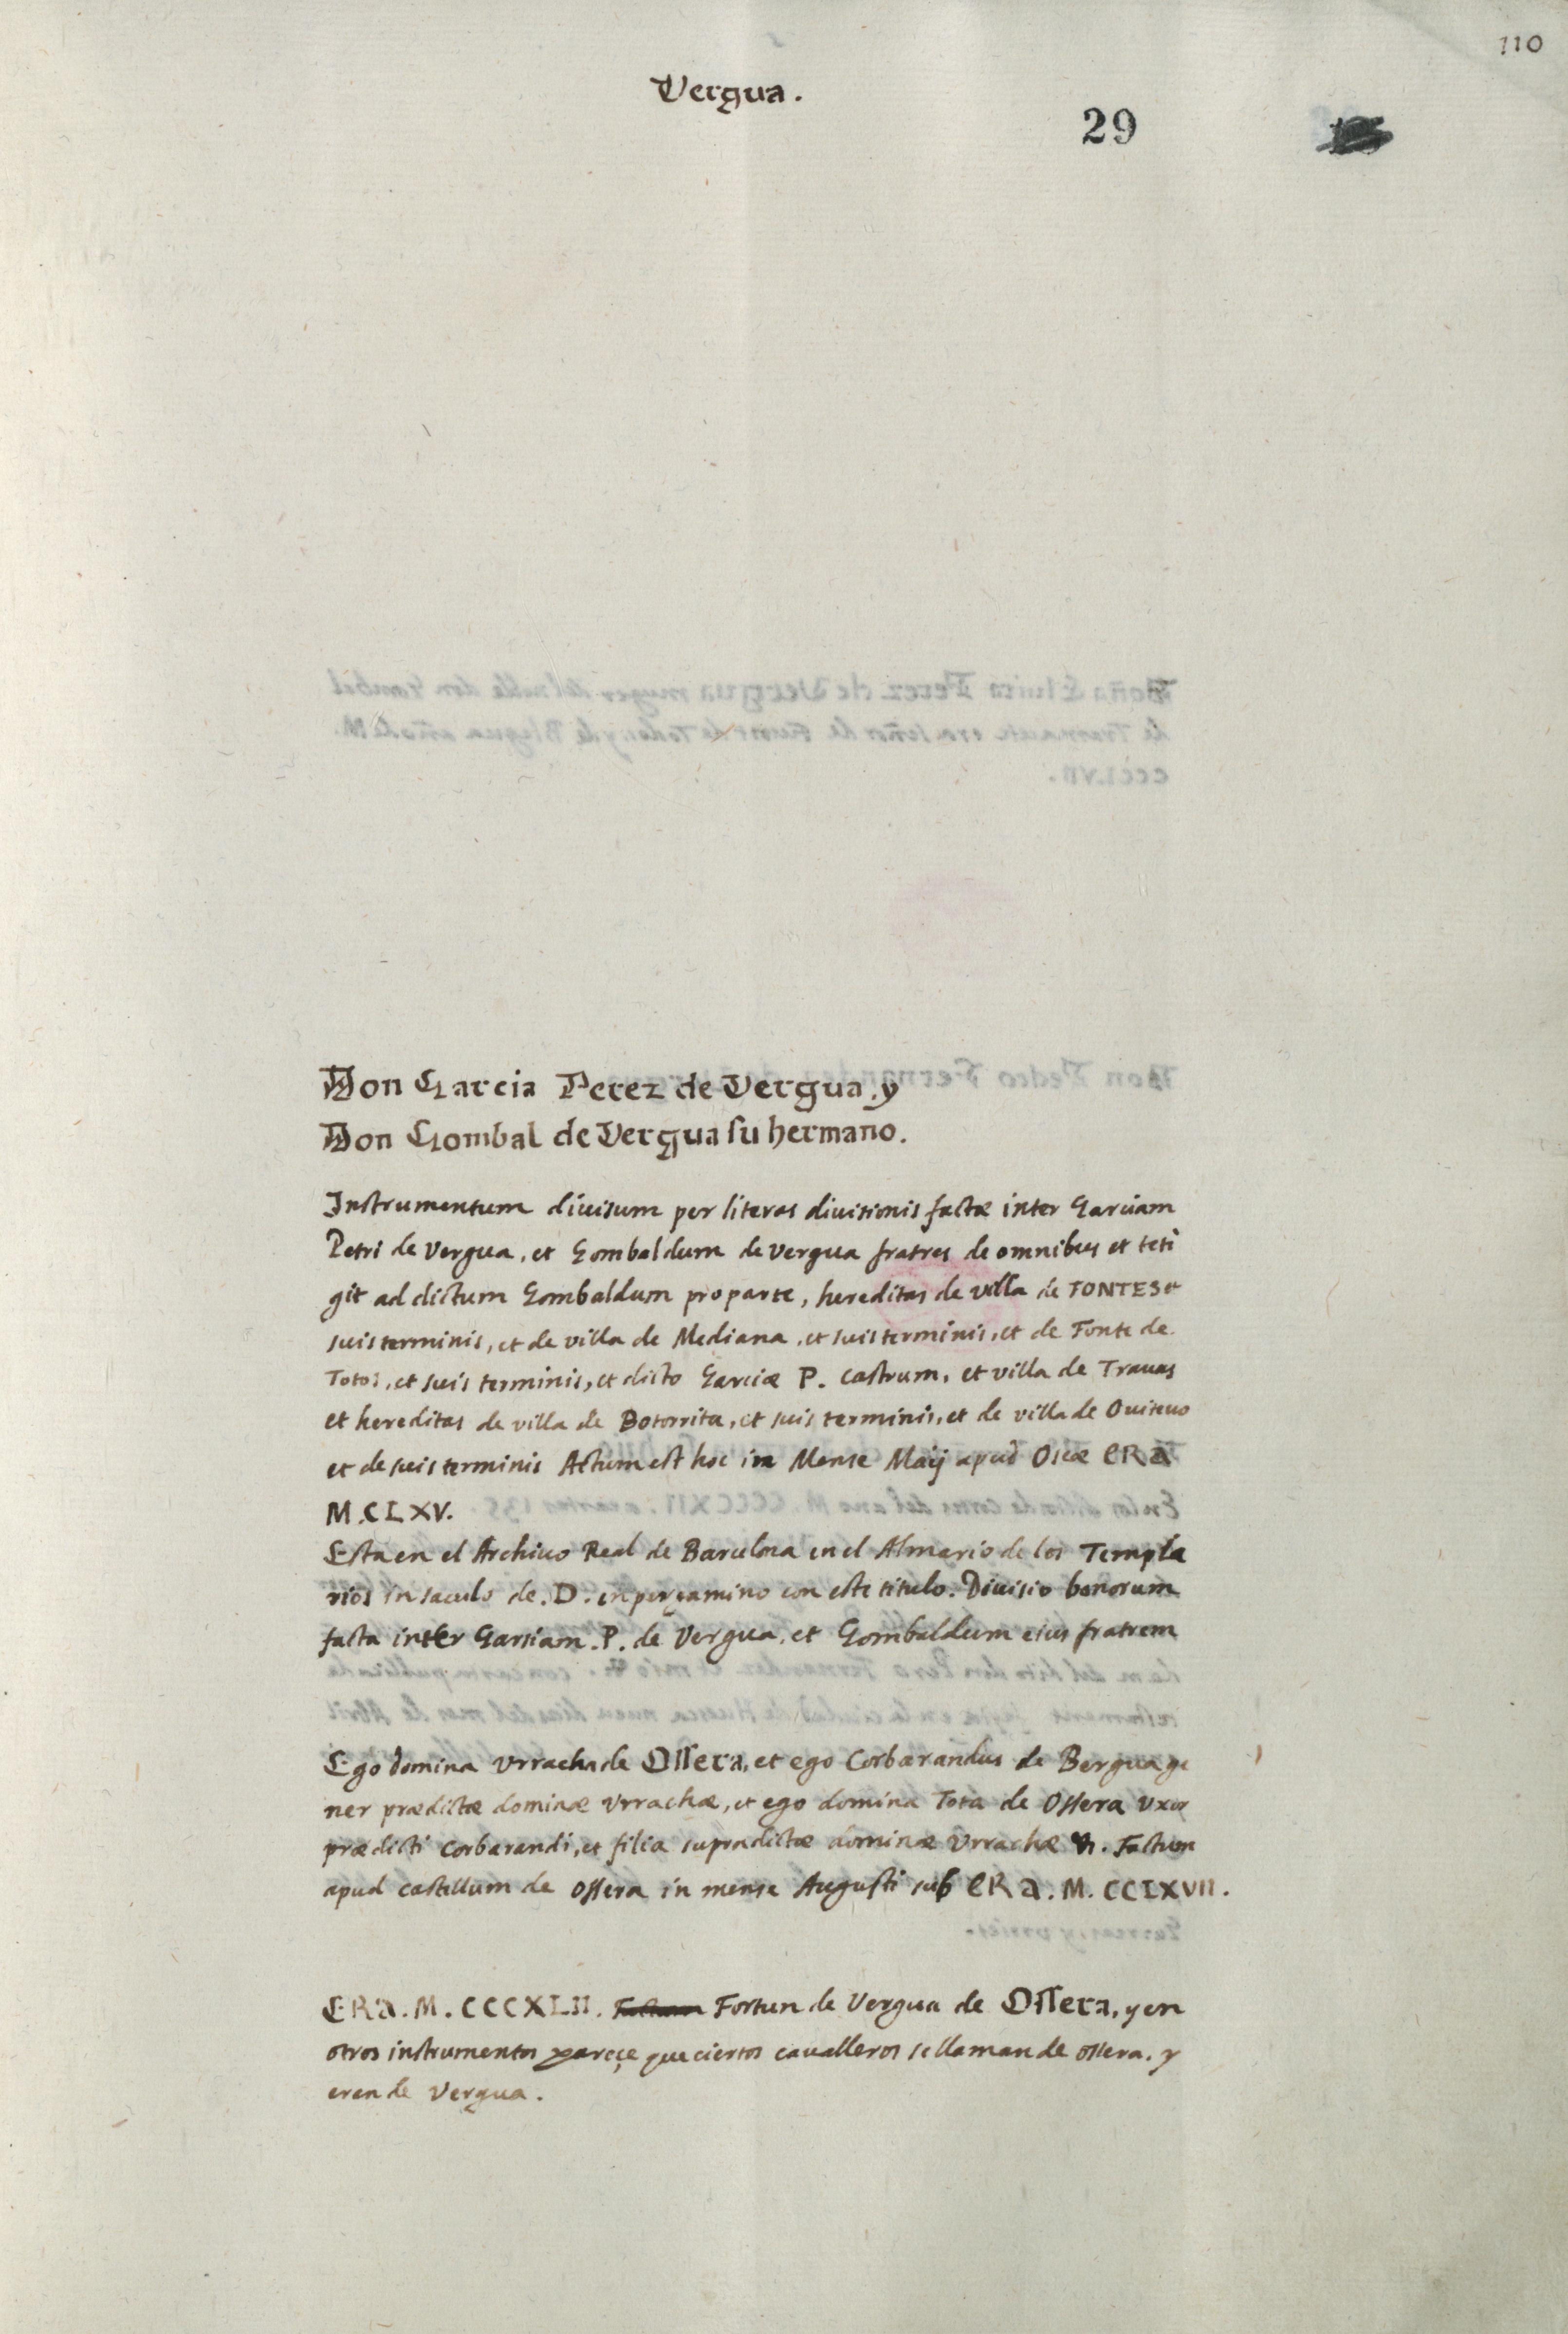 110
Vergua.
29
Don Garcia Perez de Vergua, y
Don Gombal de Vergua su hermano.
Instrumentum diuisum per literas diuisionis factæ inter Garciam
Petri de Vergua, et Gombaldum de Vergua fratres de omnibus et teti
git ad dictum Gombaldum pro parte, hereditas de villa de FONTES et
suis terminis, et de villa de Mediana, et suis terminis, et de Fonte de
Totos, et suis terminis, et dicto Garciæ P. castrum, et villa de Trauas
et hereditas de villa de Botorrita, et suis terminis, et de villa de Ouiteuo
et de suis terminis Actum est hoc in Mense Maij apud Oscæ ERA
M.CLXV.
Esta en el Archiuo Real de Barcelona en el Almario de los Templa
rios in saculo de .D. en pergamino con este titulo. Diuisio bonorum
facta inter Garsiam .P. de Vergua, et Gombaldum eius fratrem
Ego domina Vrracha de Ossera, et ego Corbarandus de Bergua ge
ner prædictæ dominæ Vrrachæ, et ego domina Tota de Ossera vxor
prædicti Corbarandi, et filia supradictæ dominæ Vrrachæ &. Factum
apud castellum de Ossera in mense Augusti sub ERA. M. CCLXVII.
ERA. M. CCCXLII. Fortun de Vergua de Ossera, y en
otros instrumentos pareçe que ciertos caualleros se llaman de Ossera. y
eren de Vergua.